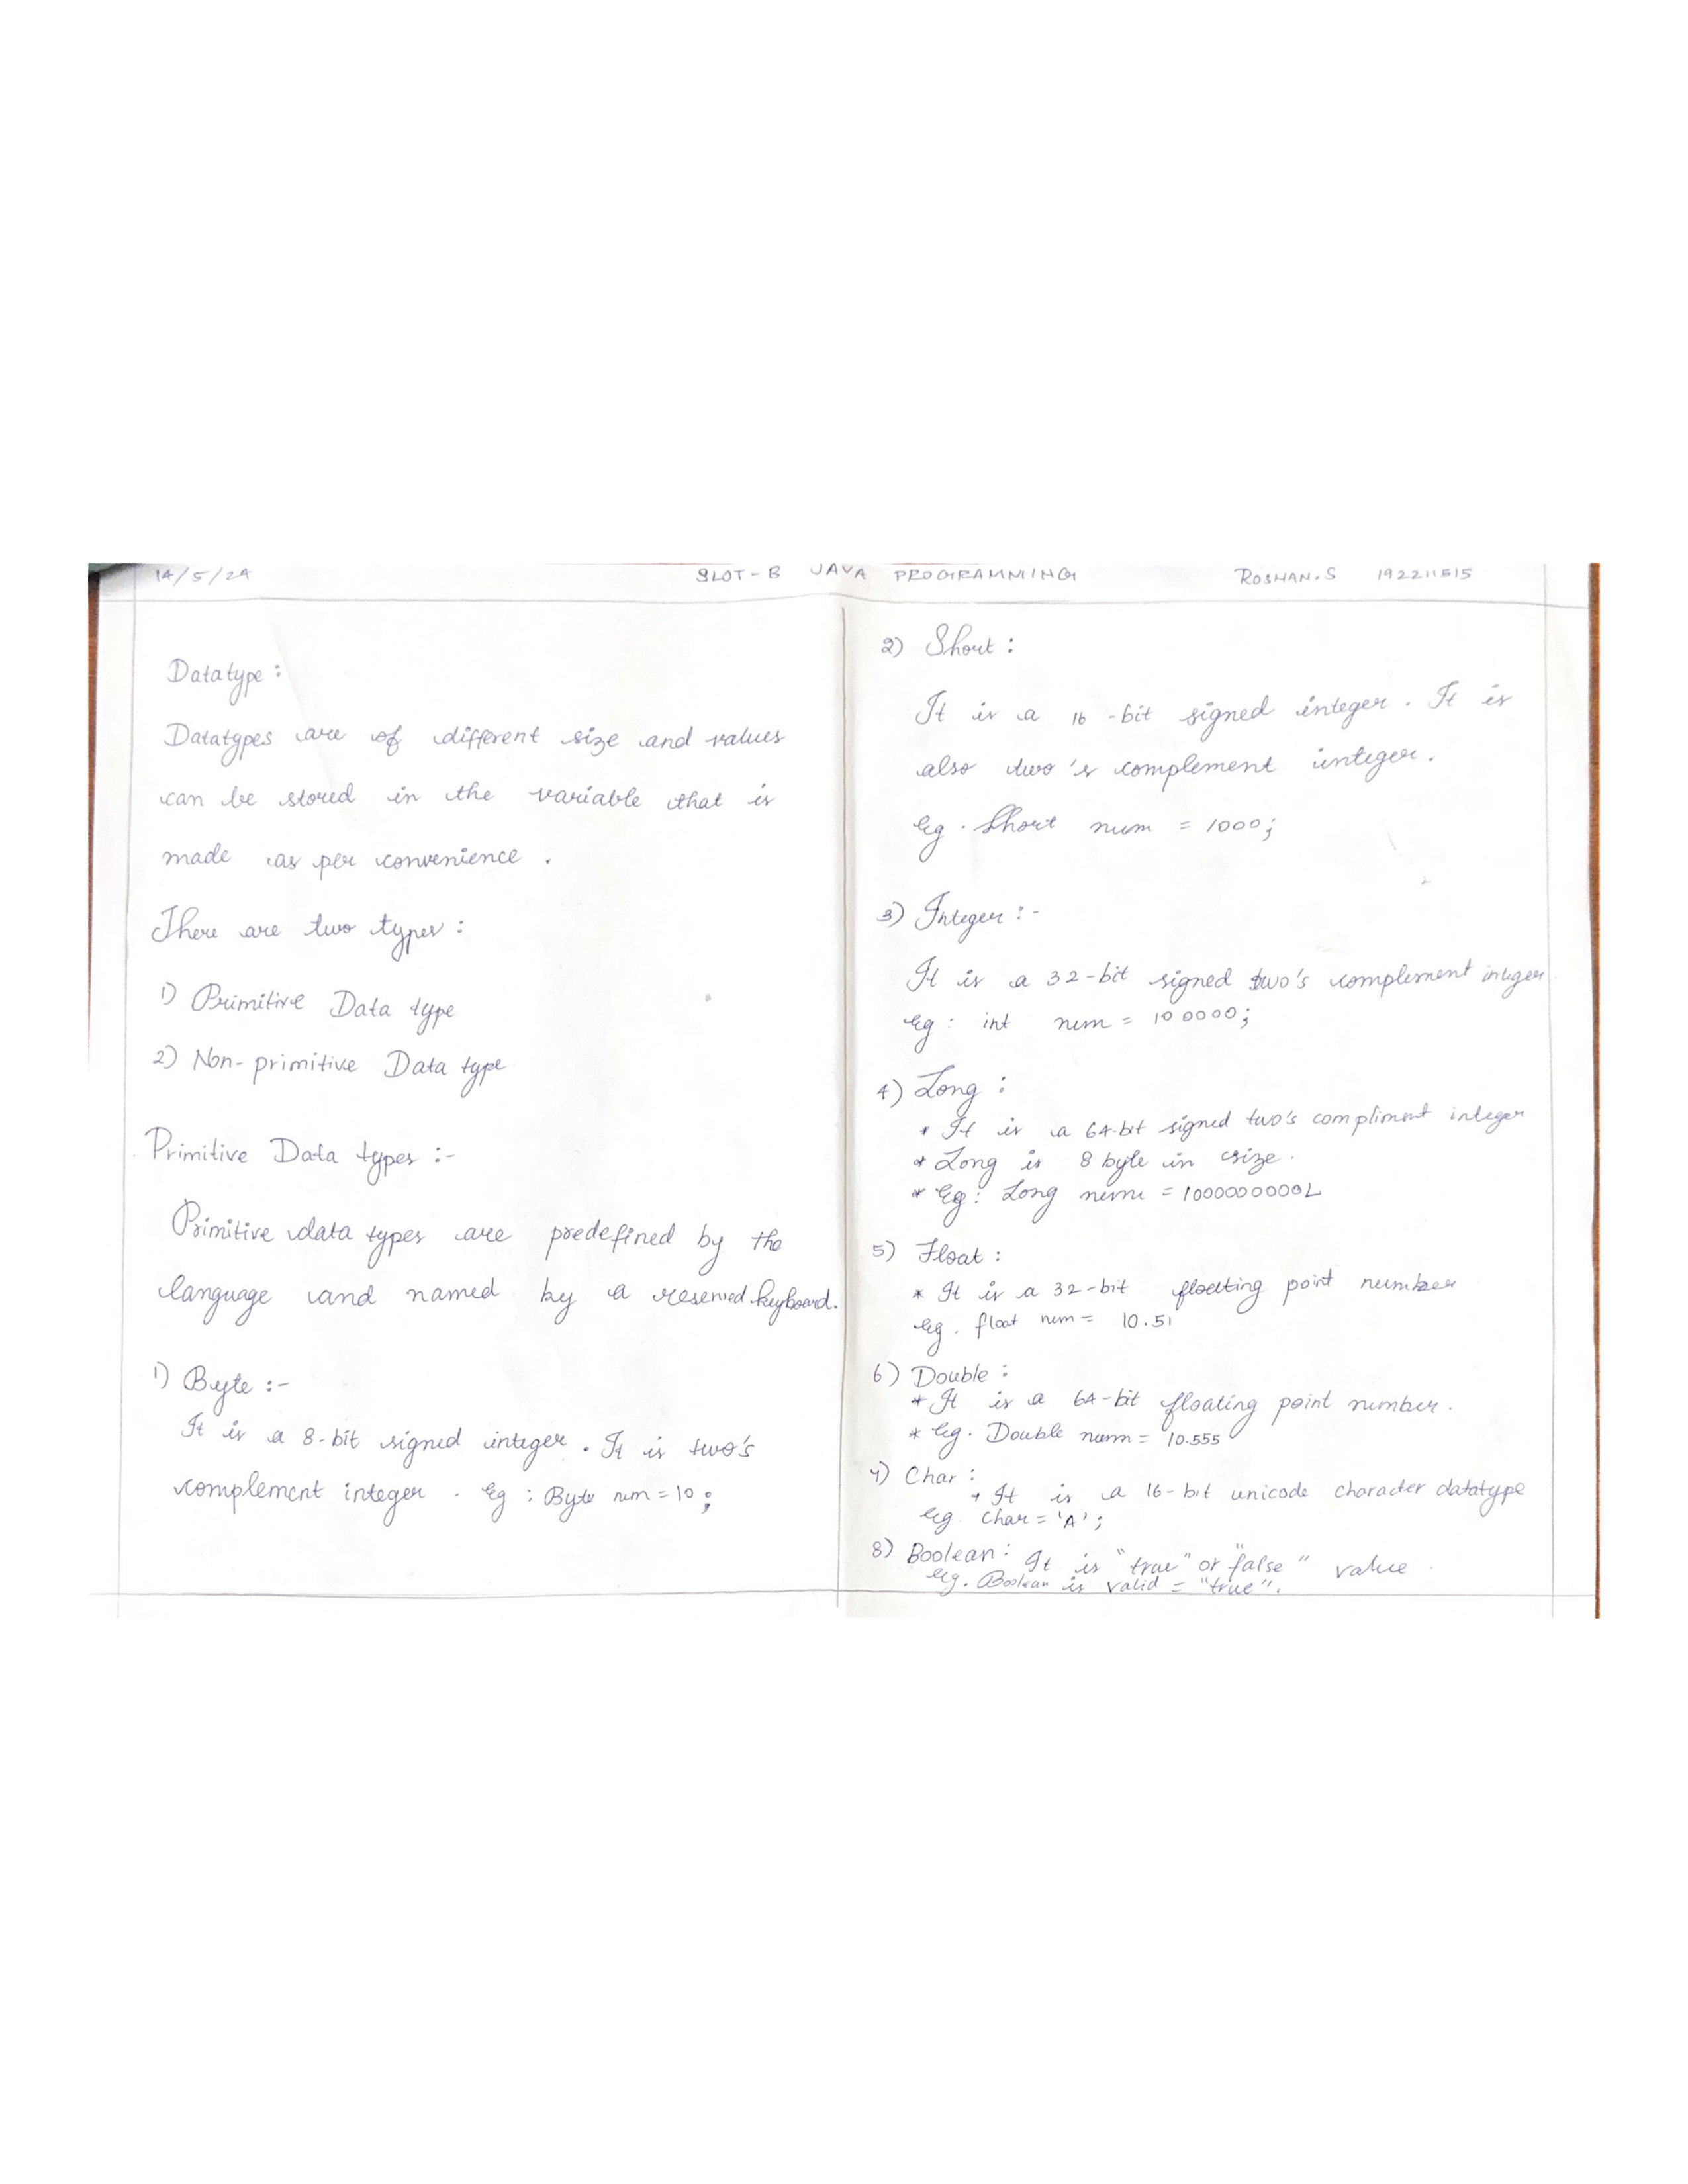 14/5/24 SLOT-B JAVA PROGRAMMING ROSHAN.S 192211515
Datatype :
Datatypes are of different size and values
can be stored in the variable that is
made as per convenience .
There are two types :
1) Primitive Data type
2) Non-primitive Data type
Primitive Data types :-
Primitive data types are predefined by the
language and named by a reserved keyboard.
1) Byte :-
It is a 8-bit signed integer . It is two's
complement integer . Eg : Byte num = 10 ;
2) Short :
It is a 16-bit signed integer . It is
also two's complement integer .
Eg . Short num = 1000 ;
3) Integer : -
It is a 32-bit signed two's complement integer
Eg : int num = 100000 ;
4) Long :
* It is a 64-bit signed two's compliment integer
* Long is 8 byte in size .
* Eg : Long num = 1000000000L
5) Float :
* It is a 32-bit floating point number
Eg . float num = 10.51
6) Double :
* It is a 64-bit floating point number .
* Eg . Double num = 10.555
7) Char :
* It is a 16-bit unicode character datatype
Eg . Char = 'A' ;
8) Boolean : It is "true" or "false" value .
Eg . Boolean is valid = "true" .